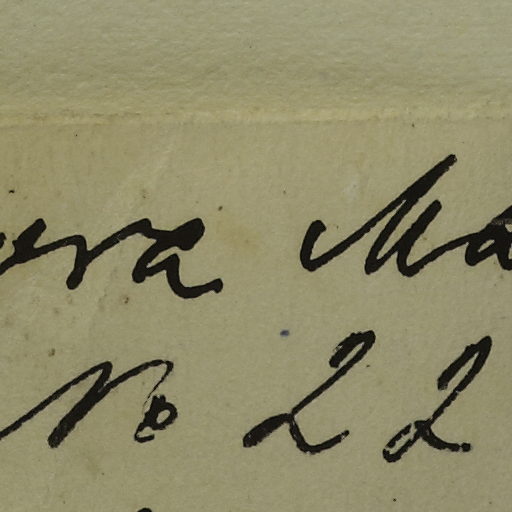 era Ma
No 22